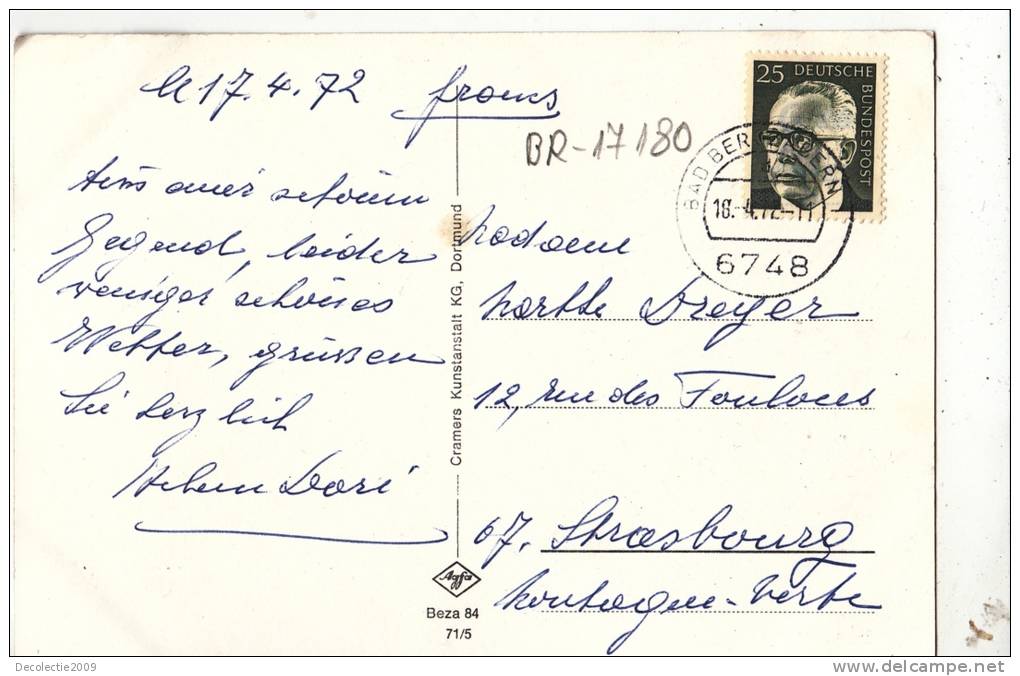 le 17.4.72
BR-17180
25 DEUTSCHE BUNDESPOST
BAD BERGZABERN
18.-4.72-11
6748
Aus einer schönen
Gegend, leider
weniger schönes
Wetter, grüssen
Sie herzlich
Madame
Marthe Dreyer
12, rue des Foulons
67. Strasbourg
Montagne-Verte
Cramers Kunstanstalt KG, Dortmund
Agfa
Beza 84
71/5
Decolectie2009
www.delcampe.net